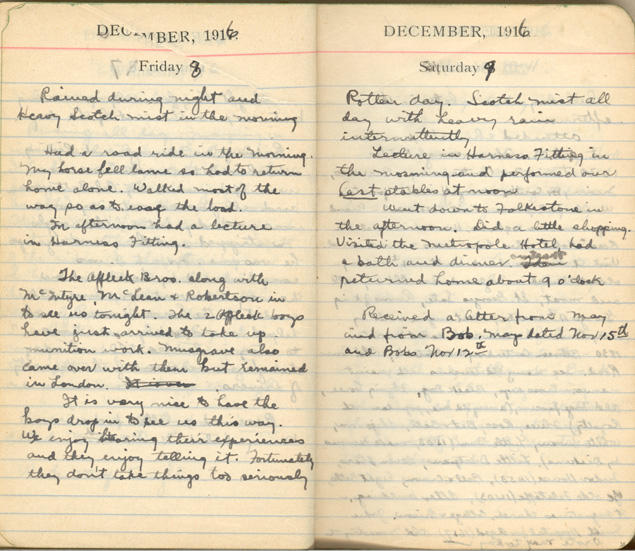 DECEMBER, 1916
Friday 8
Rained during night and
Heavy Scotch mist in the morning
Had a road ride in the morning.
My horse fell lame so had to return
home alone. Walked most of the
way so as to ease the load.
In afternoon had a lecture
in Harness Fitting.
The Affleck Bros. along with
McIntyre, McLean & Robertson in
to see us tonight. The 2 Affleck boys
have just arrived to take up
munition work. Musgrave also
came over with them but remained
in London.
It is very nice to have the
boys drop in to see us this way.
We enjoy hearing their experiences
and they enjoy telling it. Fortunately
they don't take things too seriously
DECEMBER, 1916
Saturday 9
Rotten day. Scotch mist all
day with heavy rain
intermittently
Lecture in Harness Fitting in
the morning and performed over
at stables at noon
Went down to Folkestone in
the afternoon. Did a little shopping.
Visited the Metropole Hotel, had
a bath and dinner
returned home about 9 o'clock
Received a letter from May
and from Bob. Mays dated Nov 15th
and Bobs Nov 12th